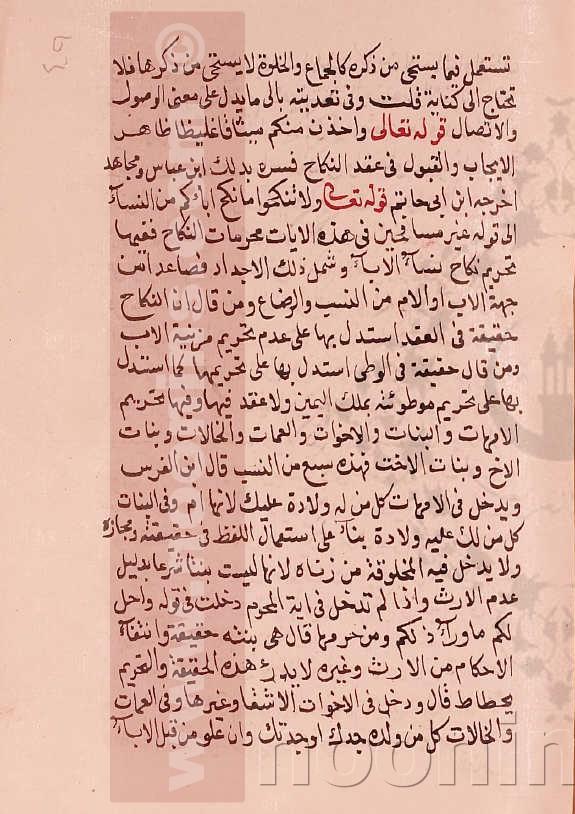 تستعمل فيما يستحى من ذكره كالجماع والخلوة لا يستحى من ذكرها فلا
تحتاج الى كناية قلت وفى تعديته بالى ما يدل على معنى الوصول
والاتصال قوله تعالى واخذن منكم ميثاقا غليظا ظاهر
الايجاب والقبول فى عقد النكاح فسره بذلك ابن عباس ومجاهد
اخرجه ابن ابى حاتم قوله تعالى ولا تنكحوا ما نكح اباؤكم من النسآ
الى قوله غير مسافحين فى هذه الايات محرمات النكاح ففيها
تحريم نكاح نسآ الابآ وشمل ذلك الاجداد فصاعدا من
جهة الاب او الام من النسب والرضاع ومن قال ان النكاح
حقيقة فى العقد استدل بها على عدم تحريم مزنية الاب
ومن قال حقيقة فى الوطى استدل بها على تحريمها كما استدل
بها على تحريم موطوئته بملك اليمين ولا عقد فيها وفيها تحريم
الامهات والبنات والاخوات والعمات والخالات وبنات
الاخ وبنات الاخت فهذه سبع من النسب قال ابن الفرس
ويدخل فى الامهات كل من له ولادة عليك لانها ام وفى البنات
كل من لك عليه ولادة بنآ على استعمال اللفظ فى حقيقته ومجازه
ولا يدخل فيه المخلوقة من زناه لانها ليست بنتا شرعا بدليل
عدم الارث واذا لم تدخل فى اية المحرم دخلت فى قوله واحل
لكم ما ورآ ذلكم ومن حرمها قال هى بنته حقيقة وانتفآ
الاحكام من الارث وغيره لا يدرء هذه الحقيقة والتحريم
يحطاط قال ودخل فى الاخوات الاشقا وغيرها وفى العمات
والخالات كل من ولده جدك او جدتك وان علو من قبل الابآ
www.
noorin